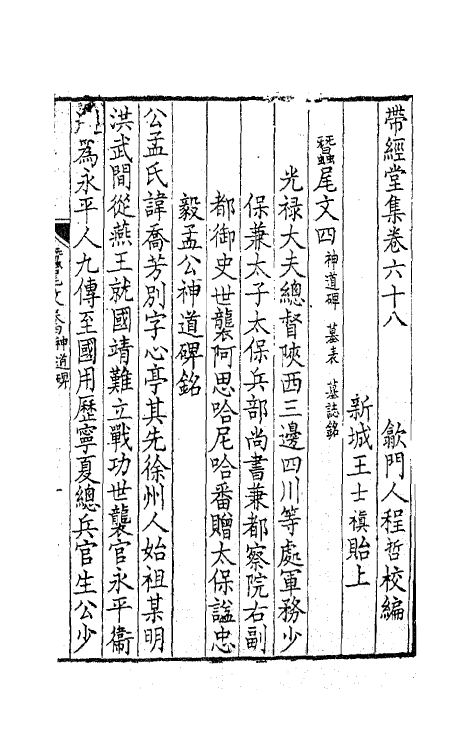 帶經堂集卷六十八　　歙門人程哲校編
新城王士禛貽上
蠶尾文四 神道碑 墓表 墓誌銘
光祿大夫總督陝西三邊四川等處軍務少
保兼太子太保兵部尚書兼都察院右副
都御史世襲阿思哈尼哈番贈太保諡忠
毅孟公神道碑銘
公孟氏諱喬芳別字心亭其先徐州人始祖某明
洪武間從燕王就國靖難立戰功世襲官永平衞
為永平人九傳至國用歷寧夏總兵官生公少
神道碑